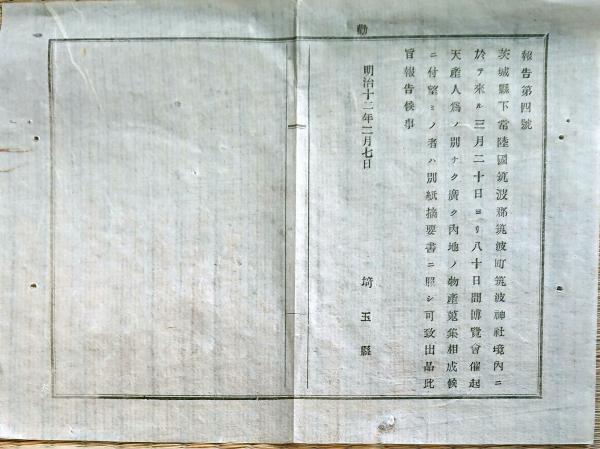 勸
報告第四號
茨城縣下常陸國筑波郡筑波町筑波神社境內ニ
於テ來ル三月二十日ヨリ八十日間博覽會催起
天產人爲ノ別ナク廣ク內地ノ物產蒐集相成候
ニ付望ミノ者ハ別紙摘要書ニ照シ可致出品此
旨報告候事
明治十二年二月七日
埼玉縣